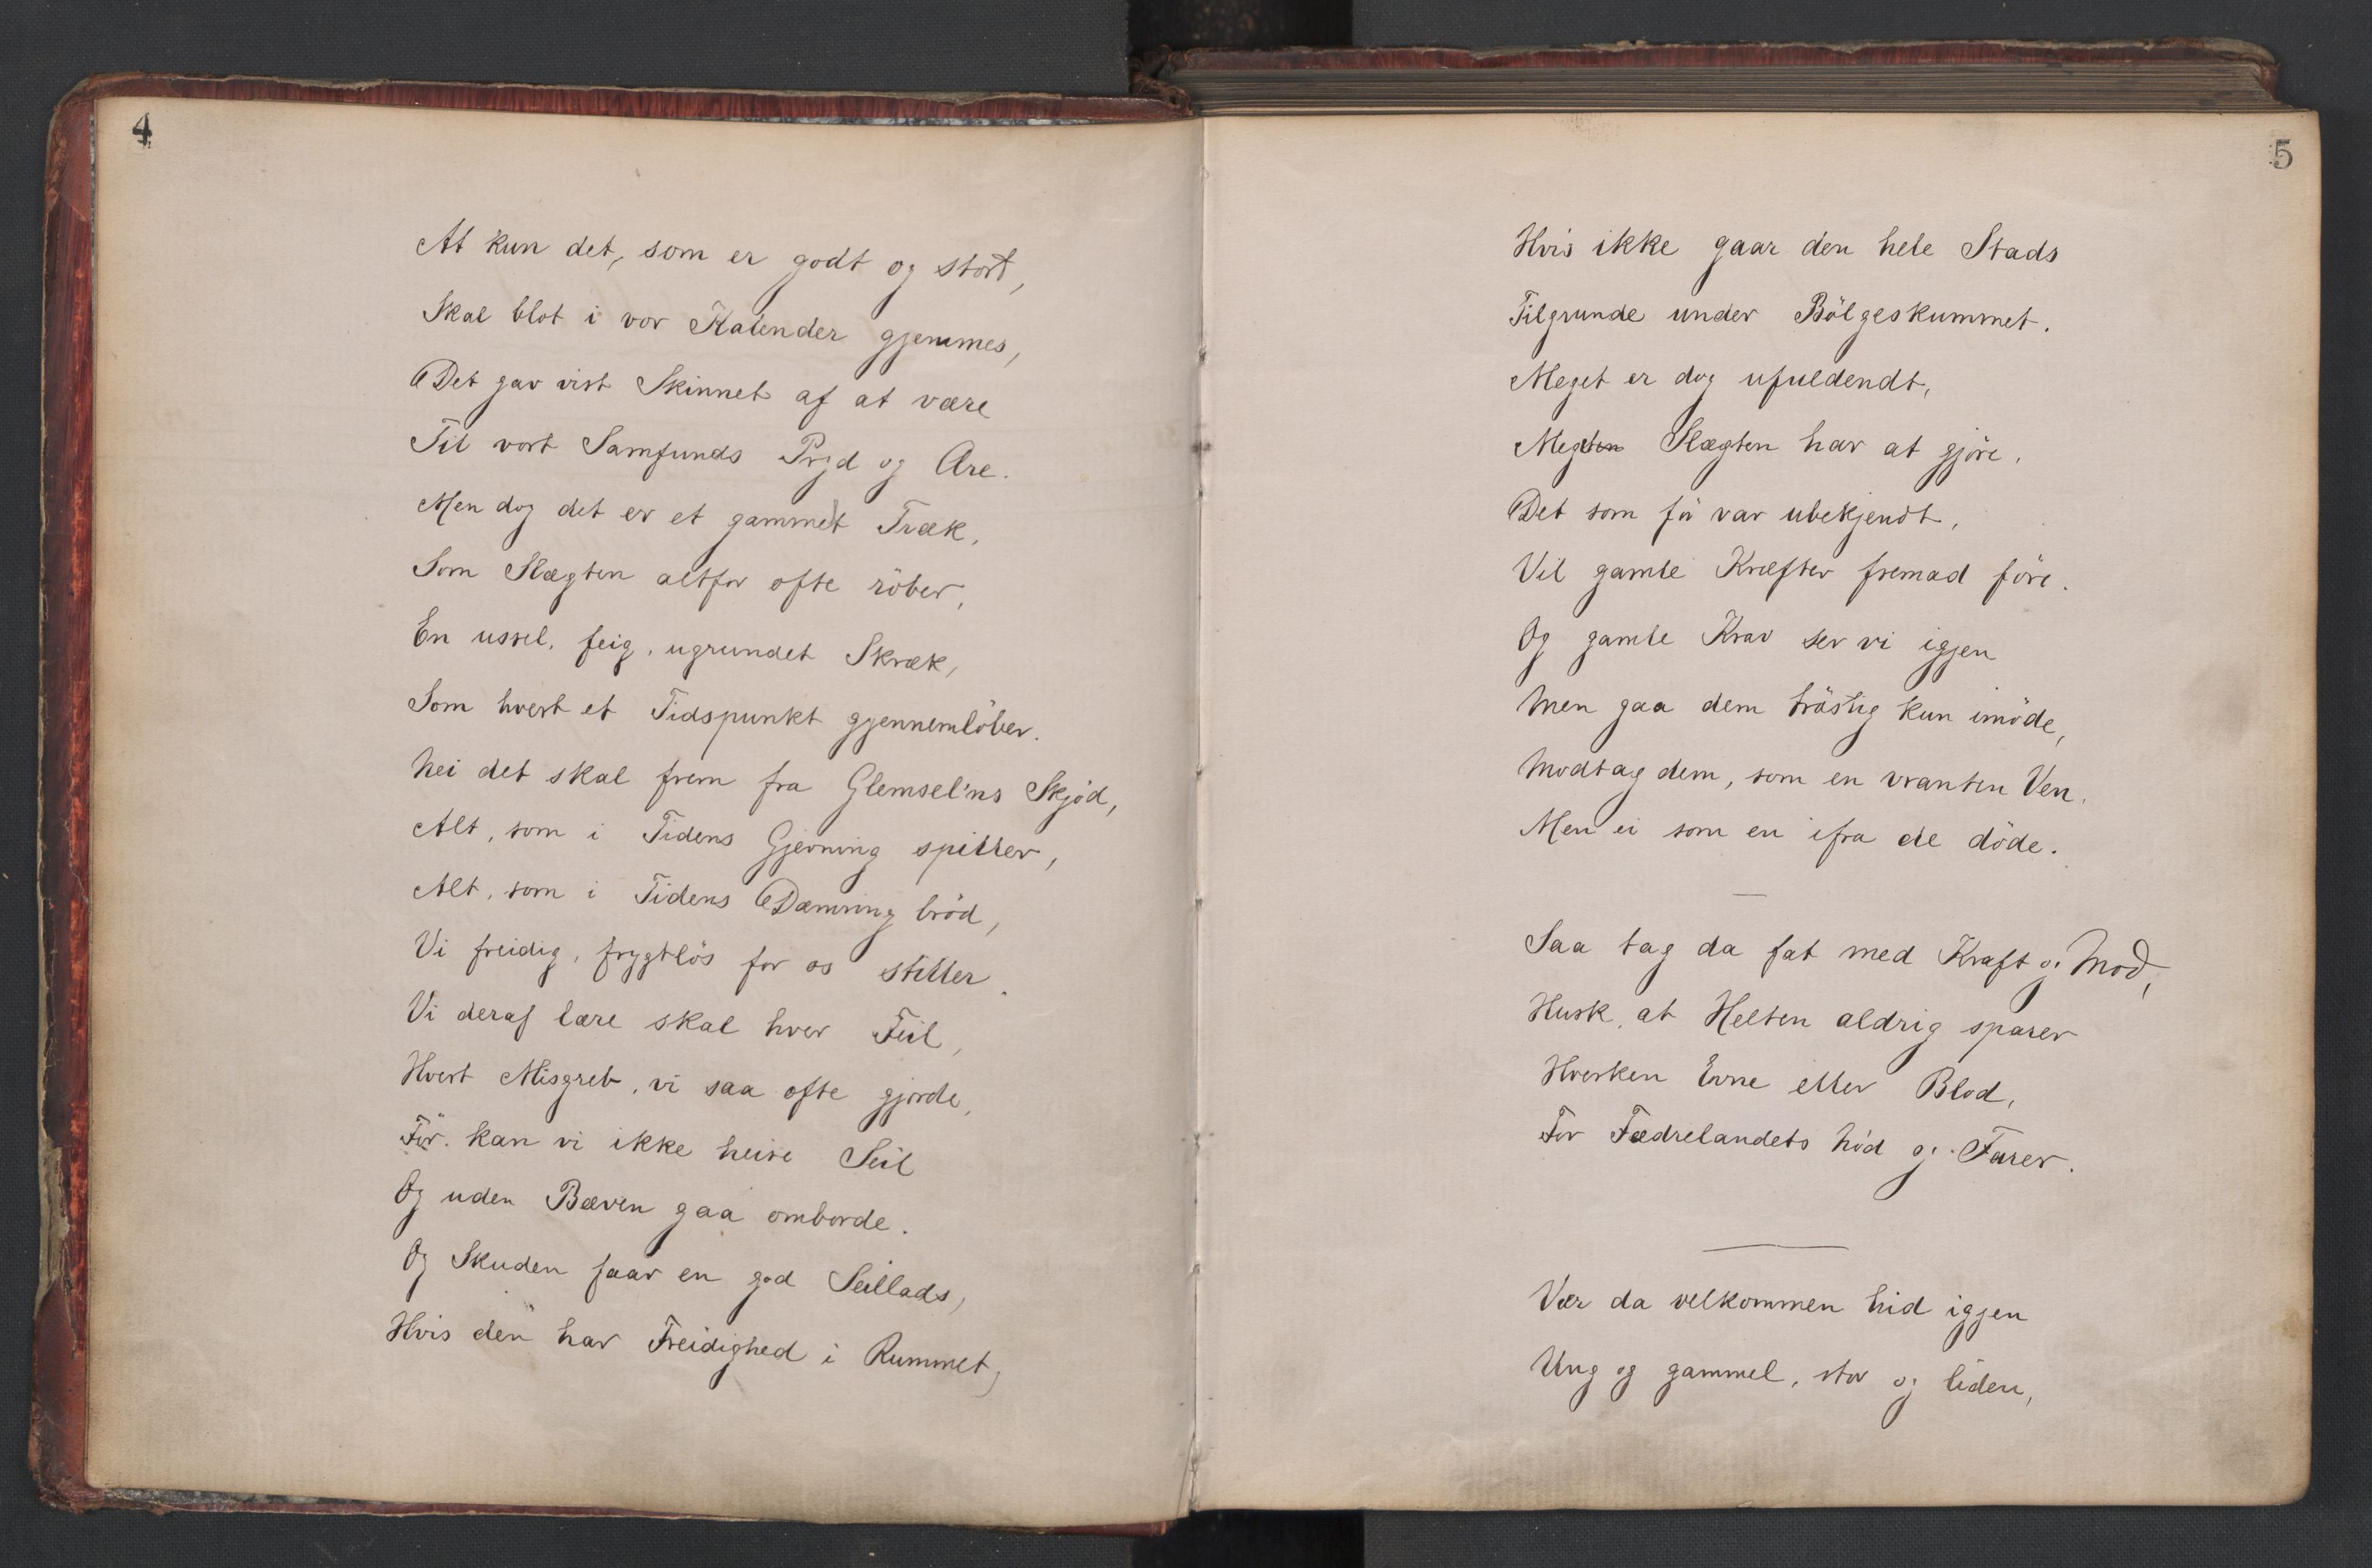 4
At kun det, som er godt og stort,
Skal blot i vor Kalender gjemmes,
Det gav vist Skinnet af at være
Til vort Samfunds Pryd og Ære.
Men dog det er et gammelt Træk,
Som Slægten altfor ofte röber,
En ussel, feig, ugrundet Skræk,
Som hvert et Tidspunkt gjennemlöber.
Nei det skal frem fra Glemsel'ns Skjöd,
Alt, som i Tidens Gjerning spiller,
Alt, som i Tidens Dæmring bröd,
Vi freidig, frygtlös for os stiller.
Vi deraf lære skal hver Feil,
Hvert Misgreb, vi saa ofte gjorde,
För kan vi ikke heise Seil
Og uden Bæven gaa omborde.
Og Skuden faar en god Seillads,
Hvis den har Freidighed i Rummet,
5
Hvis ikke gaar den hele Stads
Tilgrunde under Bölgeskummet.
Meget er dog ufuldendt,
Slægten har at gjöre,
Det som för var ubekjendt,
Vil gamle Kræfter fremad före.
Og gamle Krav ser vi igjen
Men gaa dem tröstig kun imöde,
Modtag dem, som en vranten Ven,
Men ei som en ifra de döde.
Saa tag da fat med Kraft og Mod,
Husk, at Helten aldrig sparer
Hverken Evne eller Blod,
For Fædrelandets Nöd og Farer.
Vær da velkommen hid igjen
Ung og gammel, stor og liden,